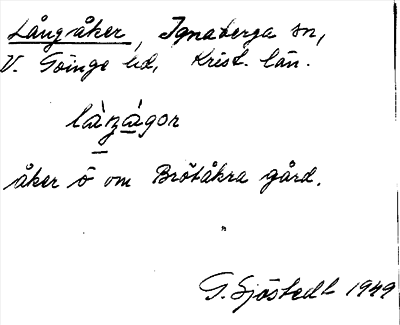 Långåker, Ignaberga sn,
V. Göinge hd, Krist. län.
låŋågor
åker ö om Brötåkra gård.
"
G. Sjöstedt 1949